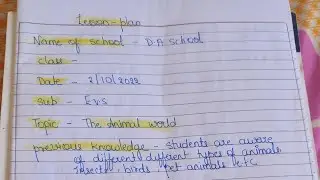 Lesson-plan
Name of school - D.A school
class -
Date - 2/10/2022
sub - Evs
Topic - The Animal world
previous knowledge - students are aware
of different different types of animals
Insects birds Pet animals etc